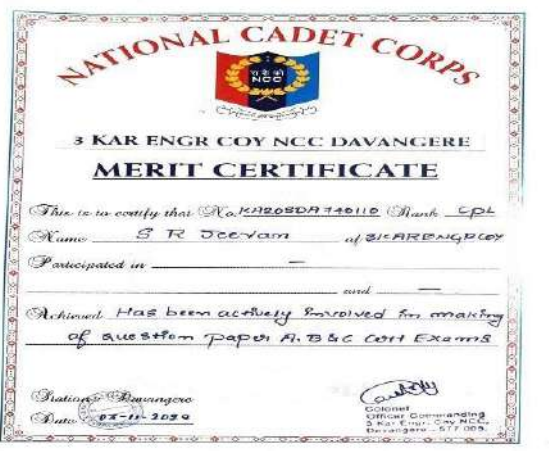 NATIONAL CADET CORPS
NCC
3 KAR ENGR COY NCC DAVANGERE
MERIT CERTIFICATE
This is to certify that No. KA20SDA740110 Rank CPL
Name S R Jeevan of 3KARENGRCOY
Participated in —
and —
Achieved Has been actively involved in making
of question paper A. B&C Cert Exams
Station: Davangere
Date
Colonel
Officer Commanding
3 Kar Engr. Coy NCC,
Davangere - 577 005.